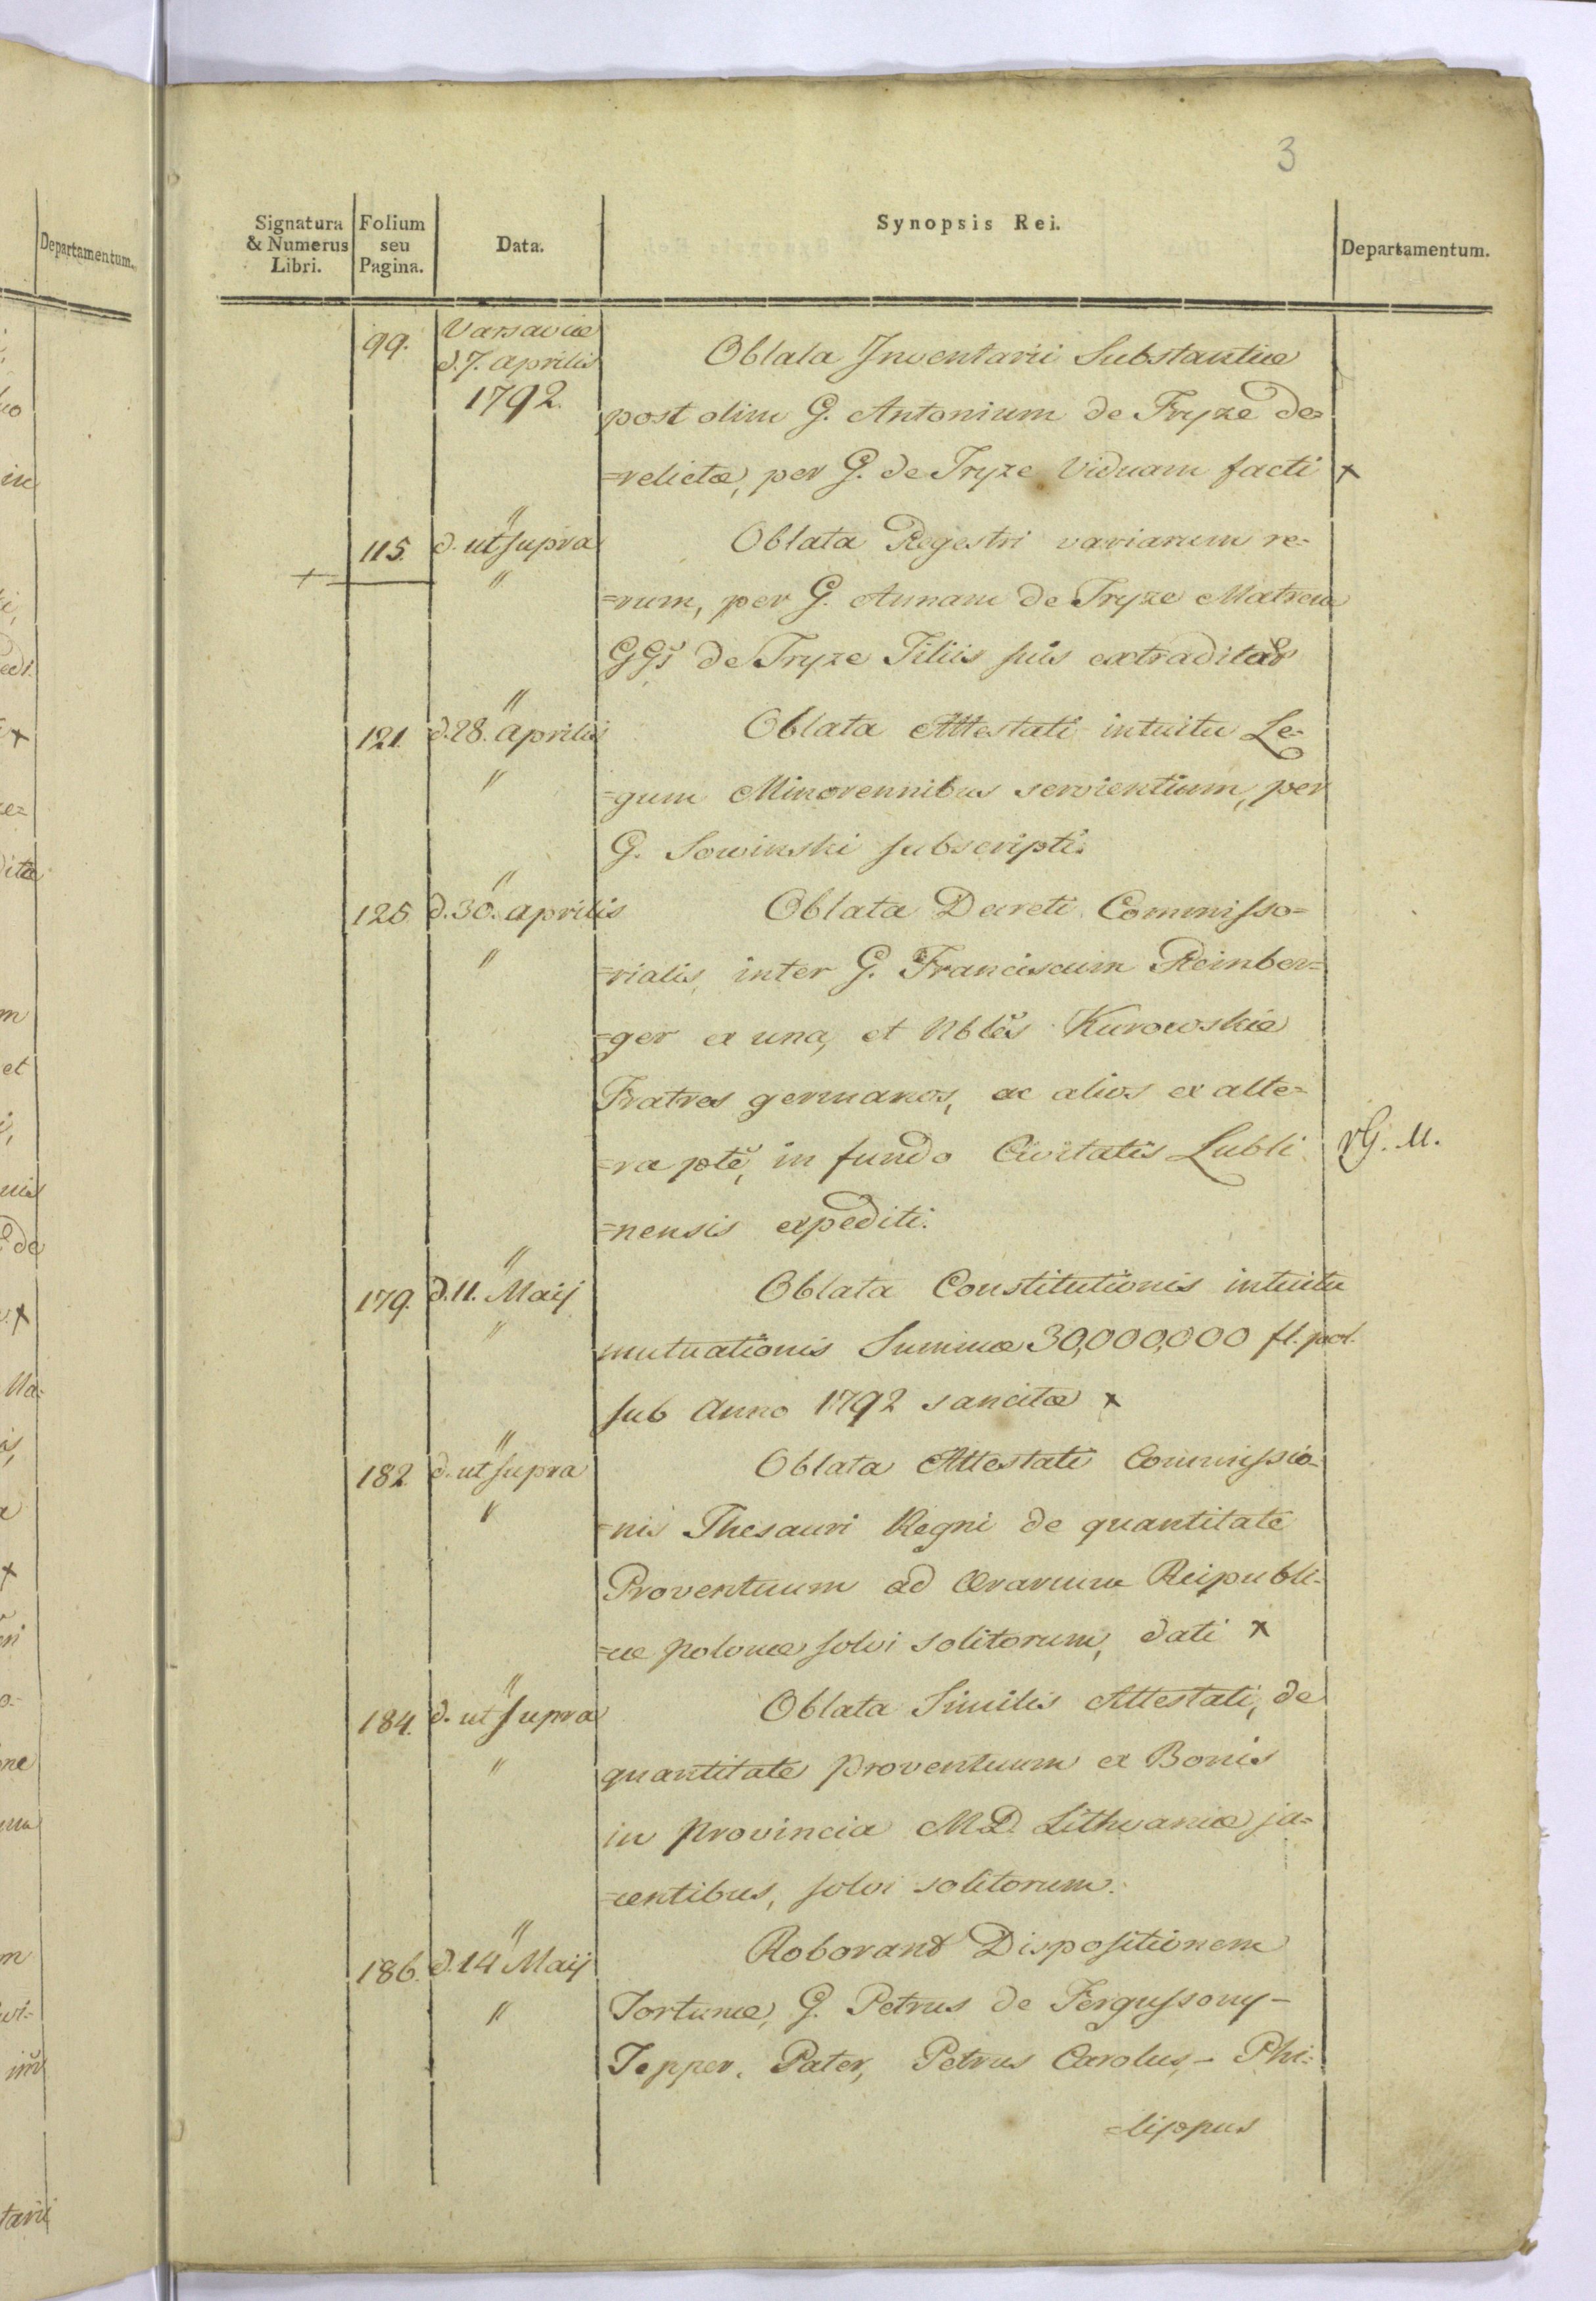 3
Departamentum.
Signatura & Numerus Libri.
Folium seu Pagina.
Data.
Synopsis Rei.
Departamentum.
99. Varsaviæ d. 7. Aprilis 1792.
Oblata Inventarii Substantiæ
post olim G. Antonium de Fryze de=
=relictæ, per G. de Fryze Viduam facti x
115. d. ut supra
Oblata Regestri variarum re=
=rum, per G. Annam de Fryze Matrem
GGis de Fryze Filiis suis extraditar
121. d. 28. Aprilis
Oblata Attestati intuitu Le=
=gum Minorennibus servientium, per
G. Sowinski subscripti.
125. d. 30. Aprilis
Oblata Decreti Commisso=
=rialis, inter G. Franciscum Reinber=
=ger ex una, et Nbles Kurowskie
Fratres germanos, ac alios ex alte=
=ra pte, in fundo Civitatis Lubli
=nensis expediti.
179. d. 11. Maij
Oblata Constitutionis intuitu
mutuationis Summæ 30,000,000 fl. pol.
sub Anno 1792 sancitæ x
182. d. ut supra
Oblata Attestati Commissio=
=nis Thesauri Regni de quantitate
Proventuum ad Ærarium Reipubli=
=cæ polonæ solvi solitorum, dati x
184. d. ut supra
Oblata Similis Attestati, de
quantitate proventuum ex Bonis
in Provincia M.D. Lithvaniæ ja=
=centibus, solvi solitorum.
186. d. 14 Maij
Roborant Dispositionem
Fortunæ, G. Petrus de Fergussony-
Tepper, Pater, Petrus Carolus,- Phi=
=lippus